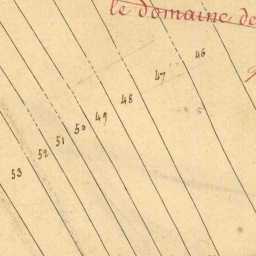 le domaine de
46
47
48
49
50
51
52
53